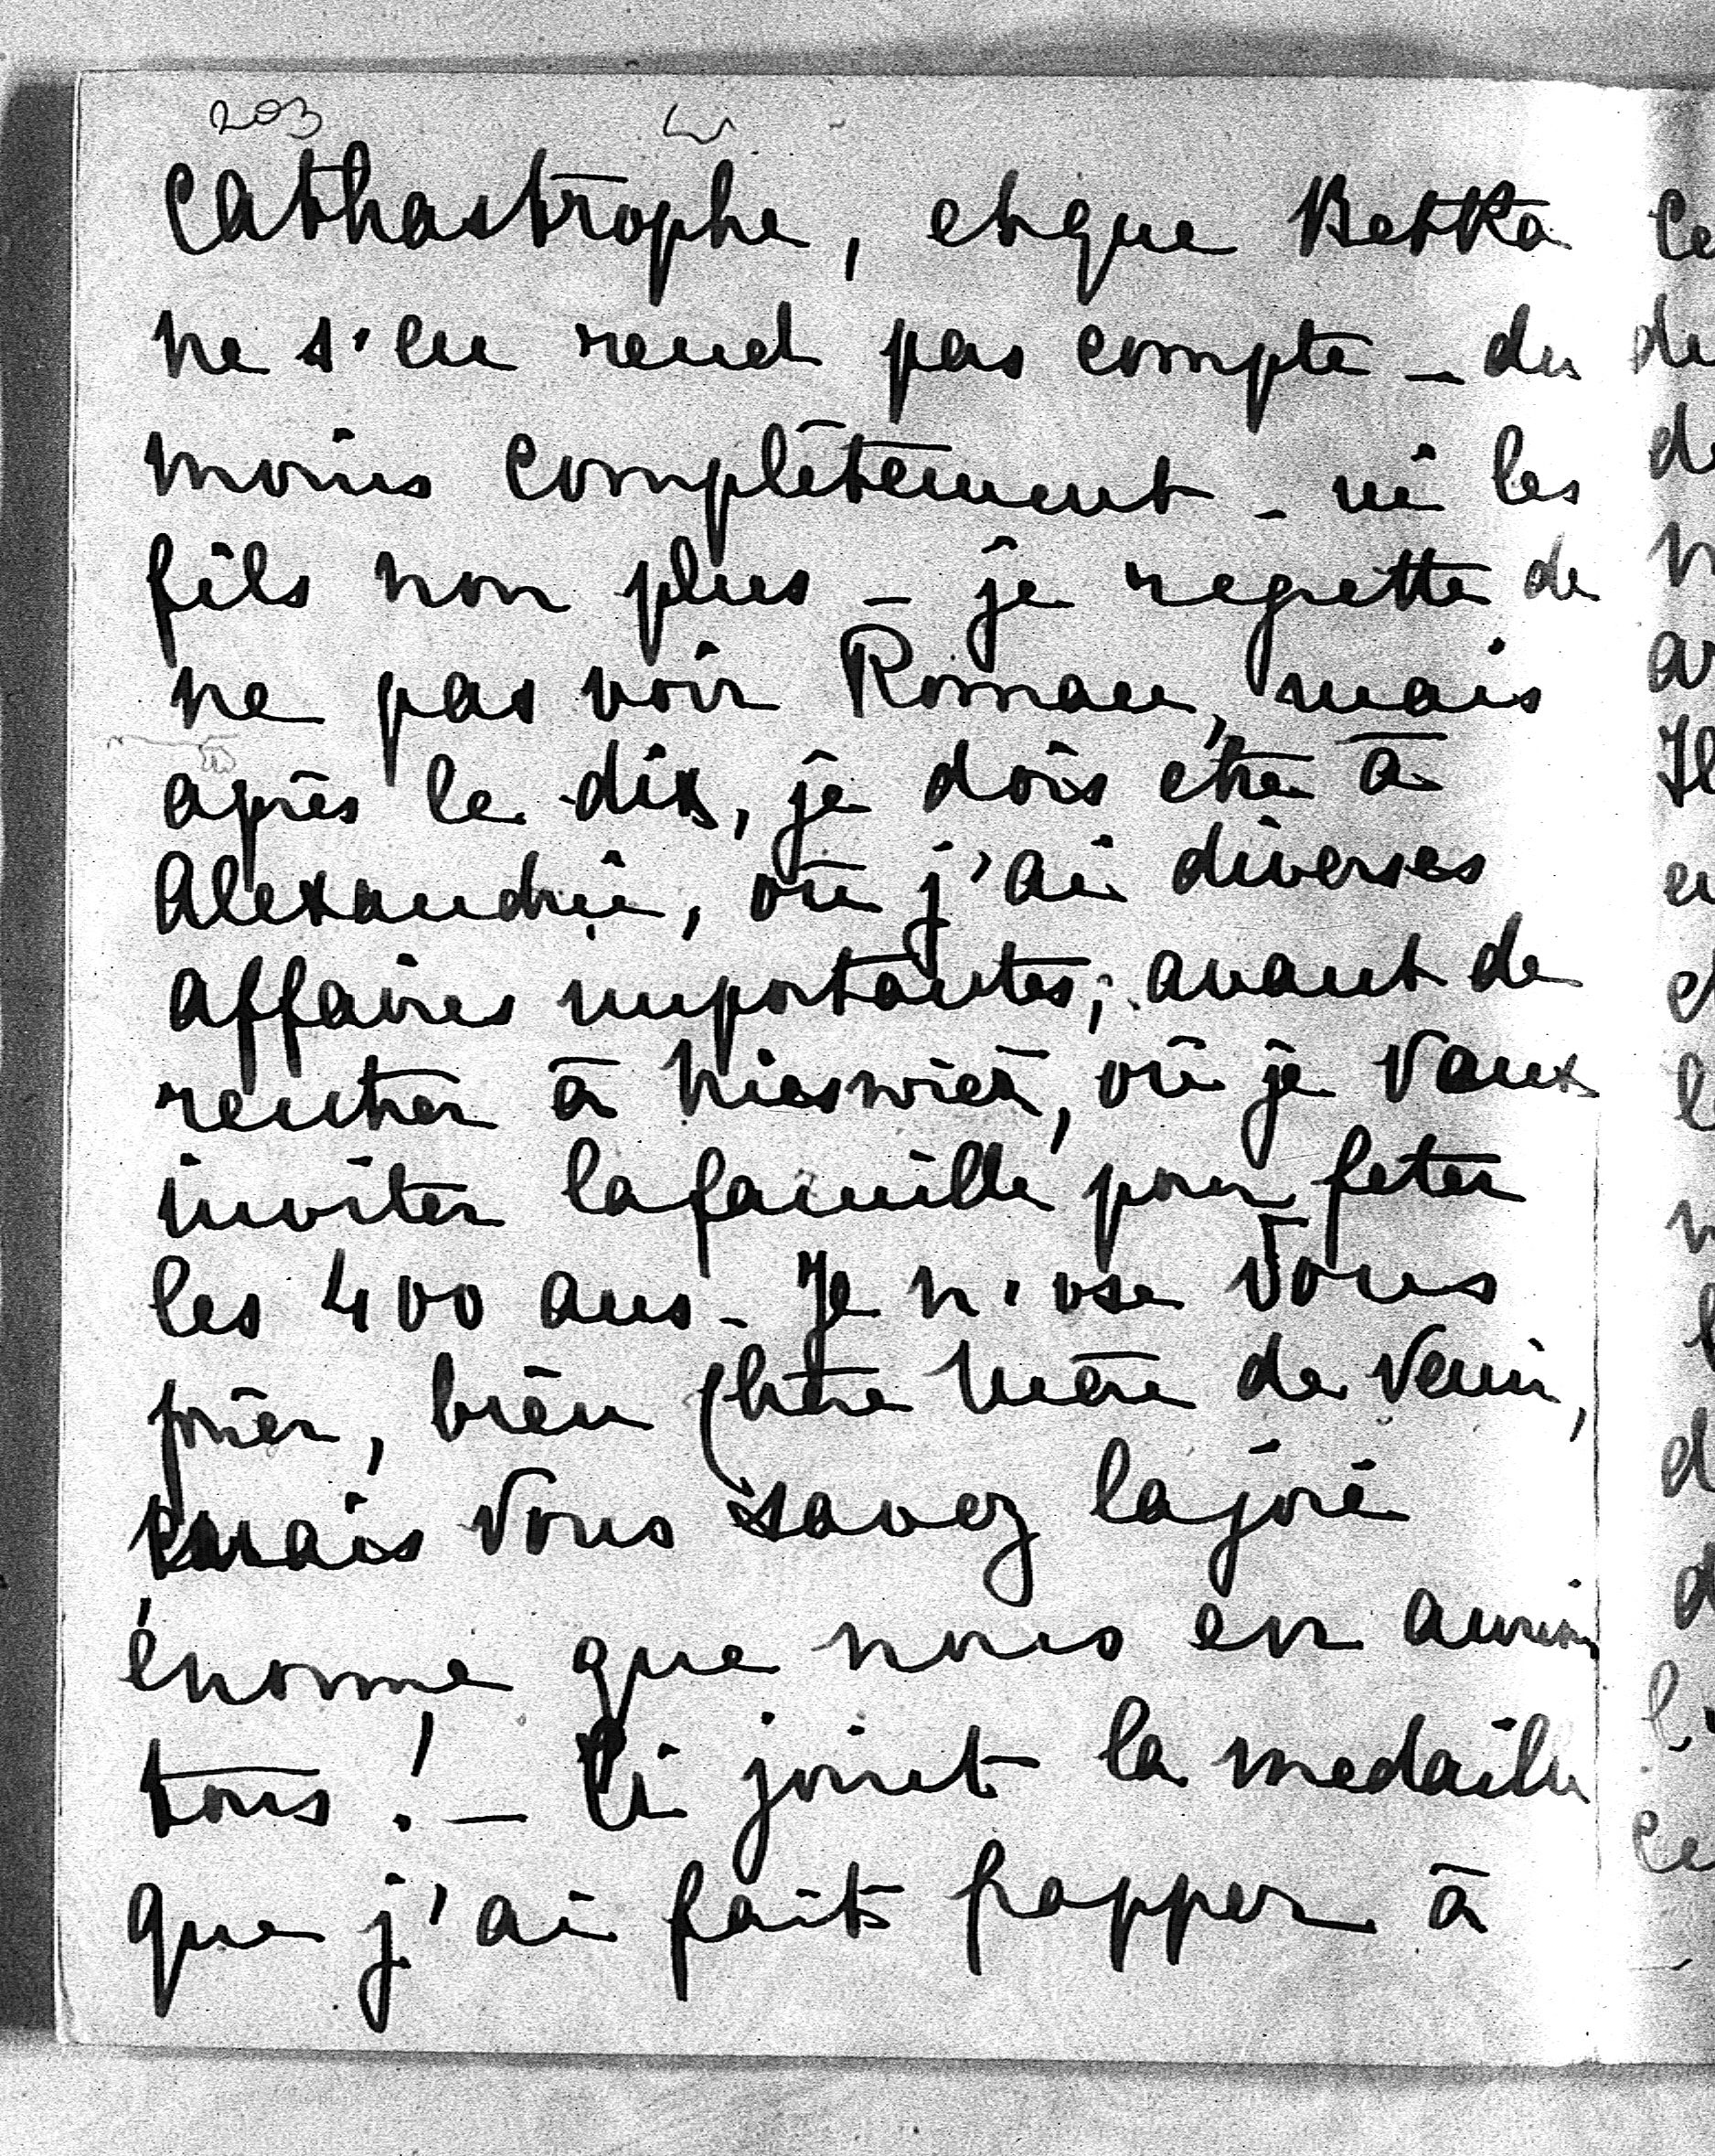 203
Cathastrophe, et que Betka
ne s'en rend pas compte _ du
moins complètement _ ni les
fils non plus _ je regrette de
ne pas voir Roman, mais
après le dix, je dois etre à
Alexandrie, où j'ai diverses
affaires importantes, avant de
rentrer à Nieswież, où je veux
inviter la famille pour feter
les 400 ans _ Je n'ose Vous
prier, bien chère Mère de venir,
mais Vous savez la joie
énorme que nous en aurions
tous ! _ Ci joint la medaille
que j'ai fait frapper à